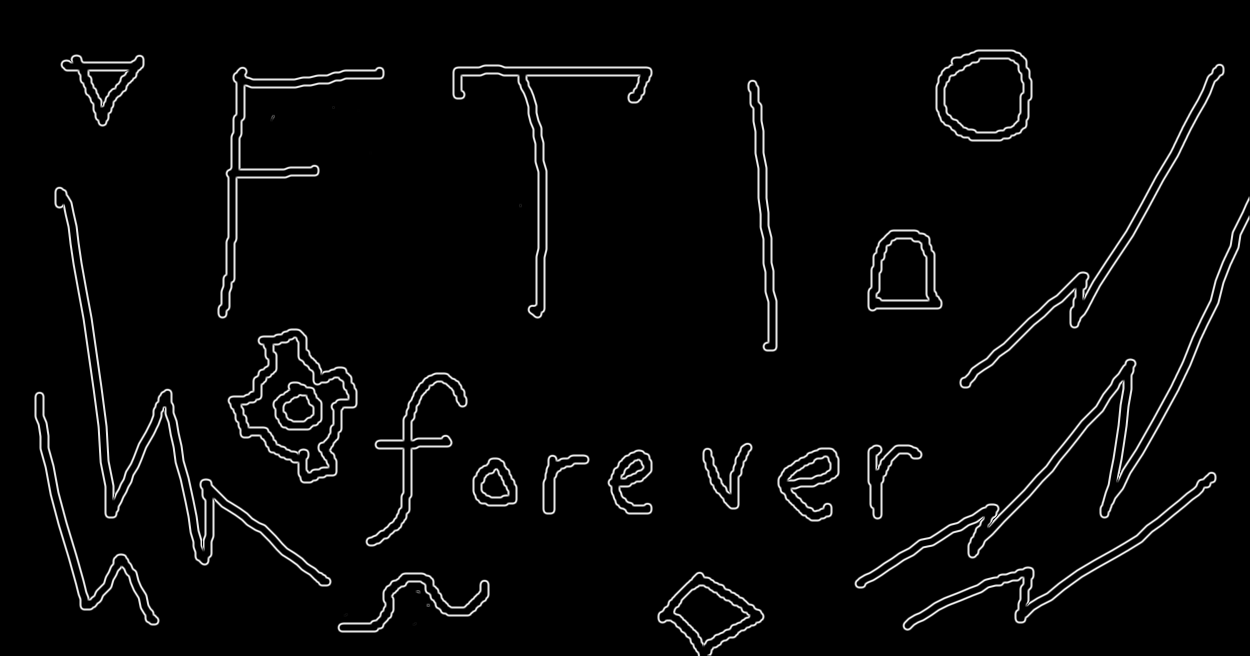 FTI
forever